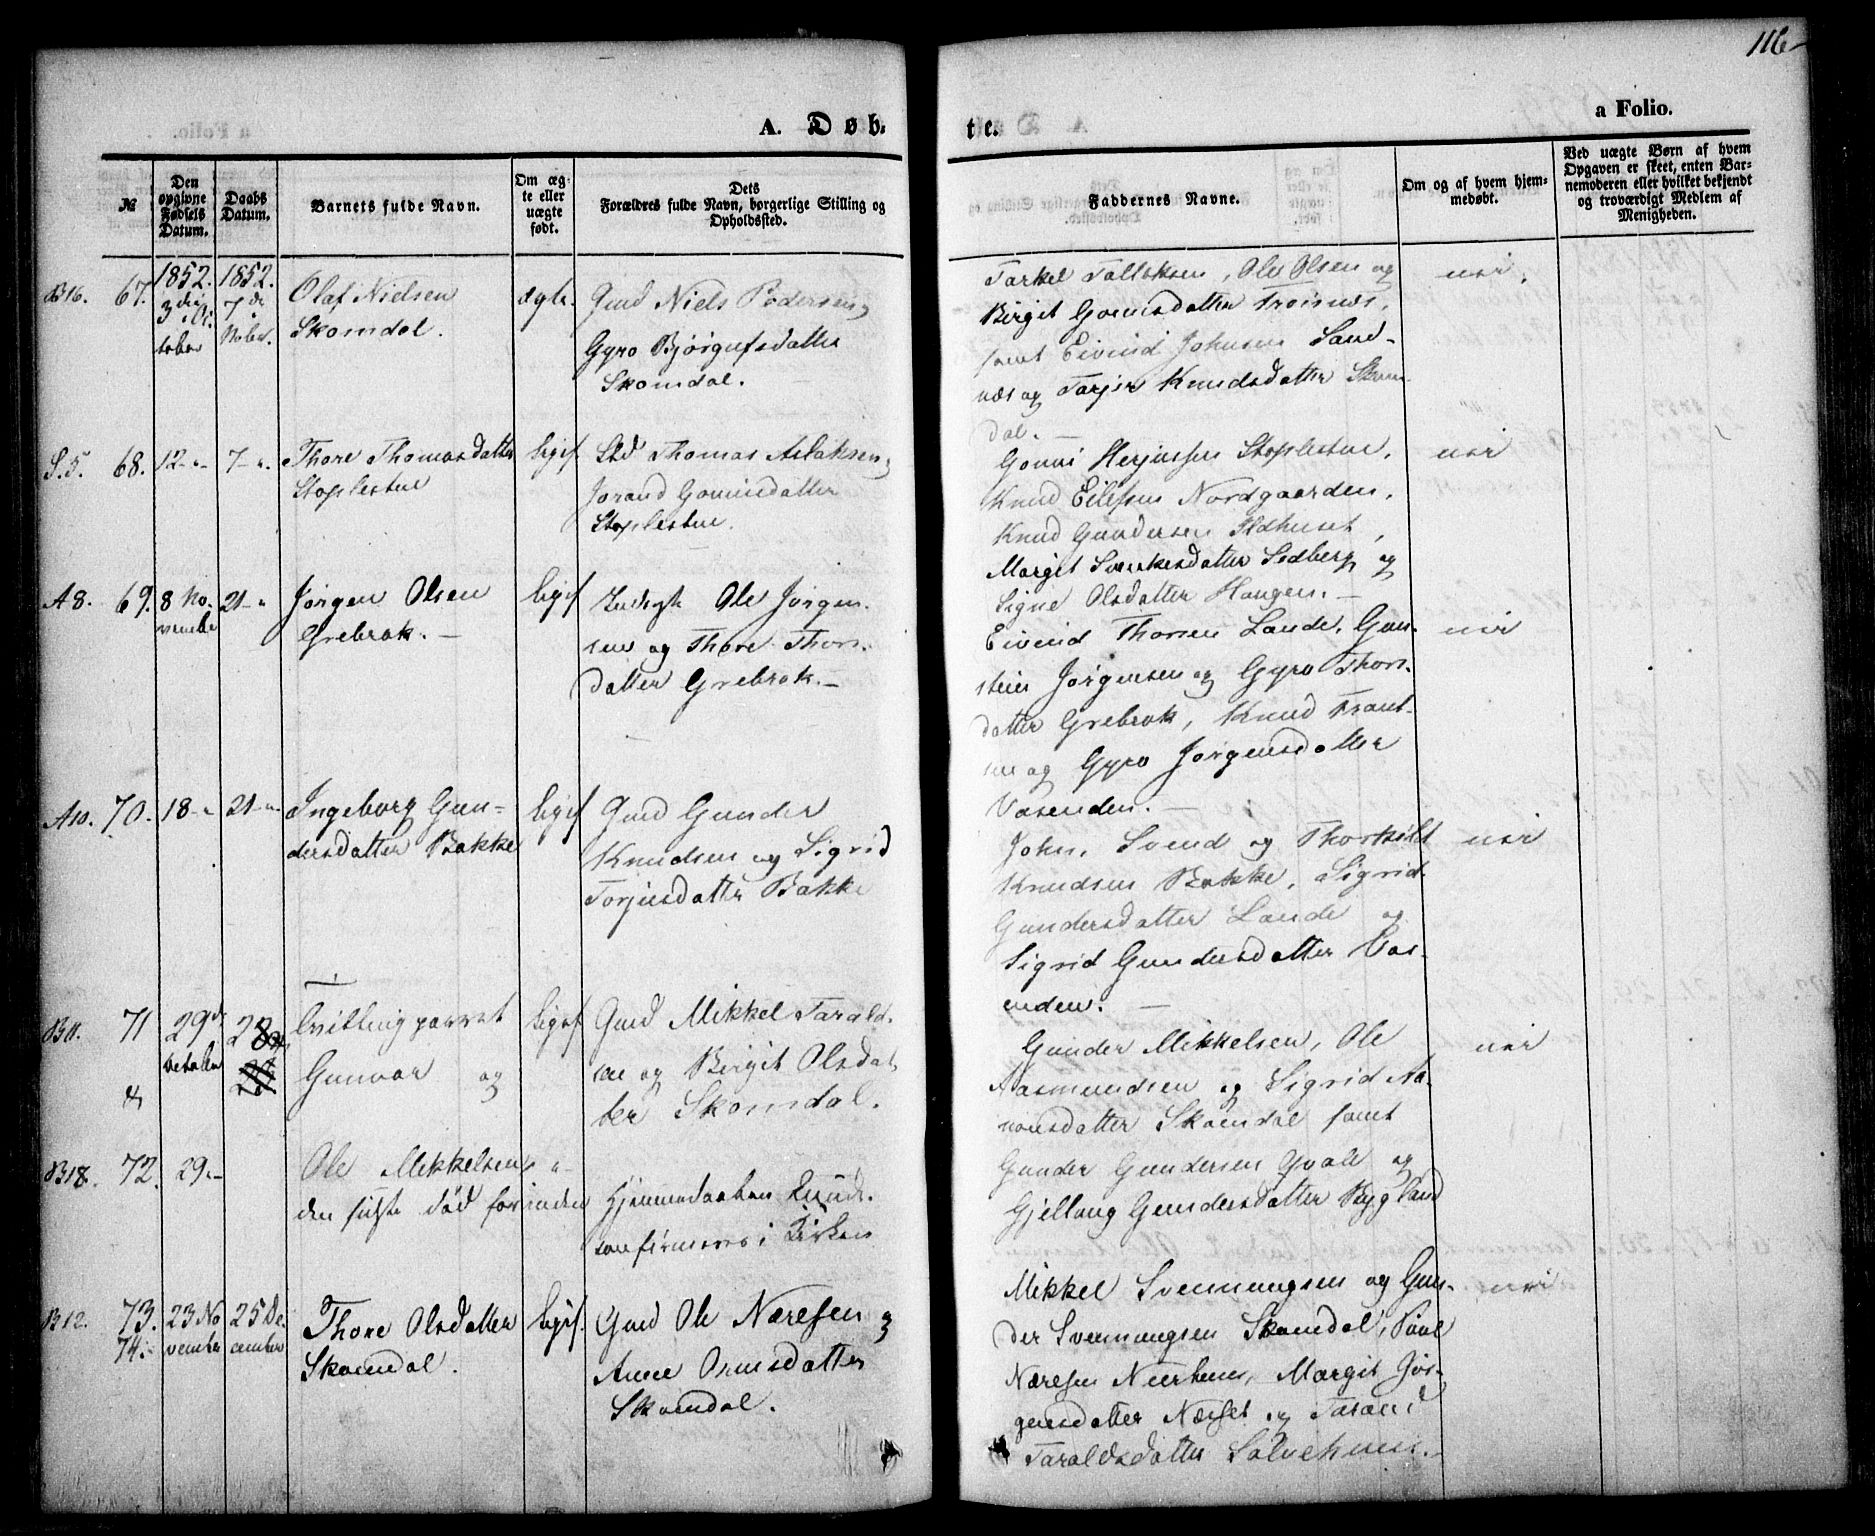 116
A. Døb-
te.
a Folio.
№
Den opgivne Fødsels Datum.
Daabs Datum.
Barnets fulde Navn.
Om ægte eller uægte født.
Dets Forældres fulde Navn, borgerlige Stilling og Opholdssted.
Faddernes Navne.
Om og af hvem hjemmedøbt.
Ved uægte Børn af hvem Opgaven er skeet, enten Barnemoderen eller hvilket bekjendt og troværdigt Medlem af Menigheden.
B16. 67. 1852. 1852.
Olaf Nielsen
Skomdal.
ægte.
Gmd Niels Pedersen
Gyro Bjørgufsdatter
Skomdal.
Tarkel Tallaksen, Ole Olsen og
Birgit Gomisdatter Trøisnes,
samt Eivind Johnsen Sand-
næs og Tarjer Knudsdatter Skom-
dal.
S.5. 68. 12 7
Thore Thomasdatter
Stoplestue
liges
Thomas Aslaksen
Jorand Gomisdatter
Stoplestue.
Gonni Herjussen Stoplestue,
Knud Eilefsen Nordgaarden,
Knud Gundersen Ildhuset,
Margit Sverkesdatter Sedberg og
Signe Olsdatter Haugen.
A8. 69. 8 No-
vember
21
Jørgen Olsen
Grebrok.
liges
Ole Jørgen-
sen og Thore Thors-
datter Grebrok.
Eivind Thorsen Lande, Gun-
stein Jørgensen og Gyro Thors-
datter Grebrok, Knud Frant-
sen og Gyro Jørgensdatter
Vasenden.
A10. 70. 18 21
Ingeborg Gun-
dersdatter Bakke
ligef
Gmd Gunder
Knudsen og Sigrid
Torjusdatter Bakke
John, Svend og Thorkild
Knudsen Bakke, Sigrid
Gundersdatter Lande og
Sigrid Gundersdatter Vas-
enden.
B11. 71 29de
October
Tvillingparret
Gunvor og
ligef
Gmd Mikkel Tarald-
sen og Birgit Olsdat-
ter Skomdal.
Gunder Mikkelsen, Ole
Aasmundsen og Sigrid Aa-
nonsdatter Skomdal samt
Gunder Gundersen Qvale og
Gjellaug Gundersdatter Bygland
B18. 72. 29
Ole Mikkelsen
den sidste død forinden
Hjemmedaaben
confirmeres i Kirken
B12. 73. 23 No-
vember
25 De-
cember
74.
Thore Olsdatter
Skomdal.
ligef.
Gmd Ole Næresen
Anne Ormsdatter
Skomdal.
Mikkel Svennungsen og Gun-
der Svennungsen Skomdal, Paul
Næresen, Margit Jør-
gensdatter Næset og Tarand
Taraldsdatter